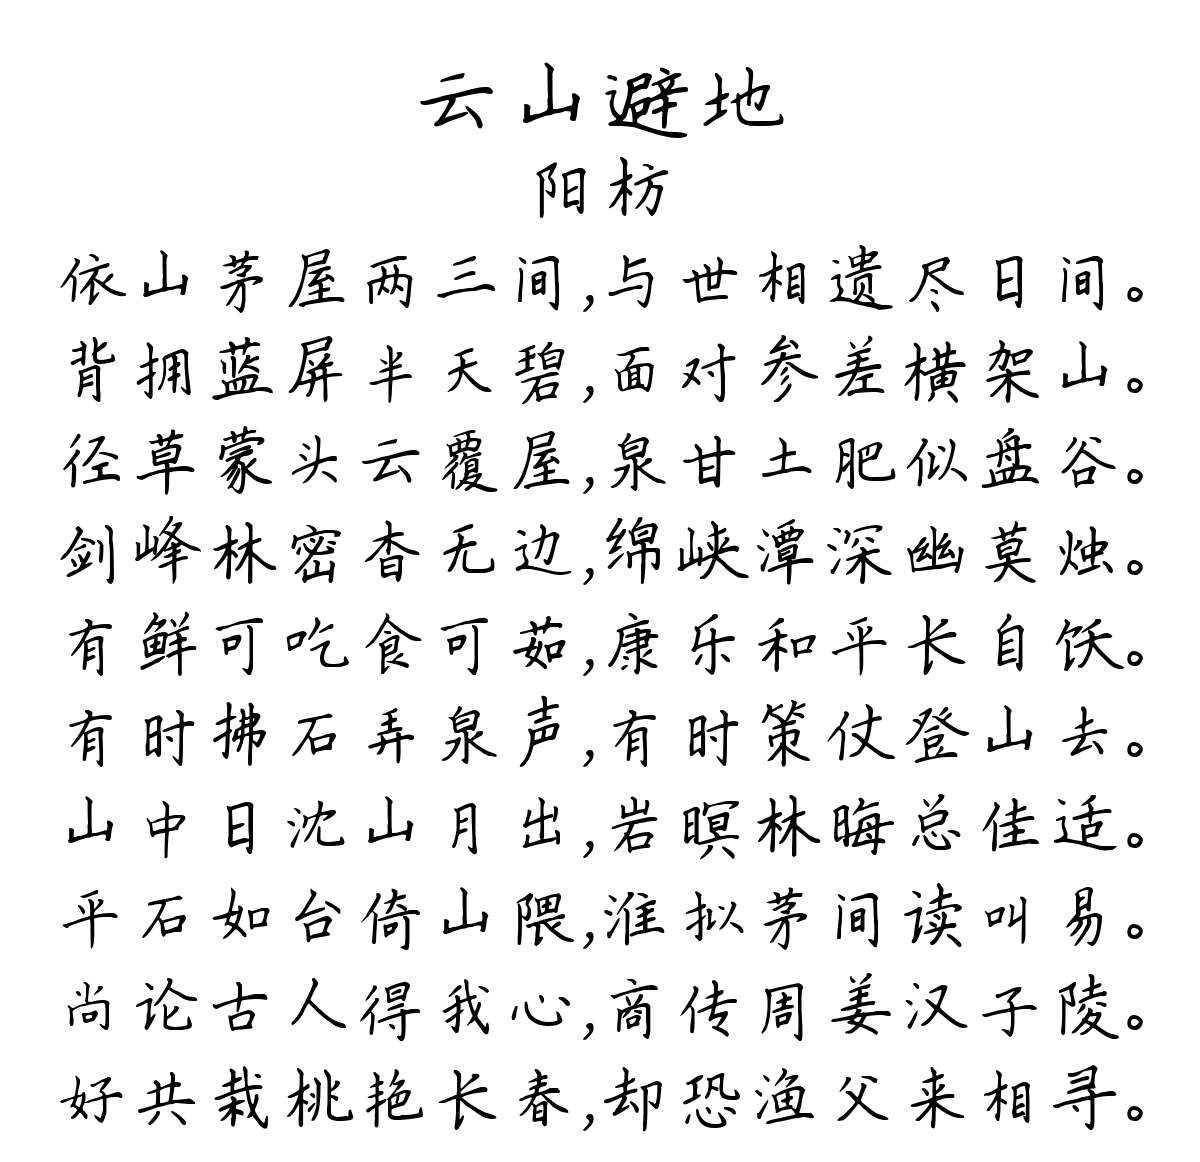 云山避地
阳枋
依山茅屋两三间,与世相遗尽日间。
背拥蓝屏半天碧,面对参差横架山。
径草蒙头云覆屋,泉甘土肥似盘谷。
剑峰林密杳无边,绵峡潭深幽莫烛。
有鲜可吃食可茹,康乐和平长自饫。
有时拂石弄泉声,有时策仗登山去。
山中日沈山月出,岩暝林晦总佳适。
平石如台倚山隈,淮拟茅间读叫易。
尚论古人得我心,商传周姜汉子陵。
好共栽桃艳长春,却恐渔父来相寻。